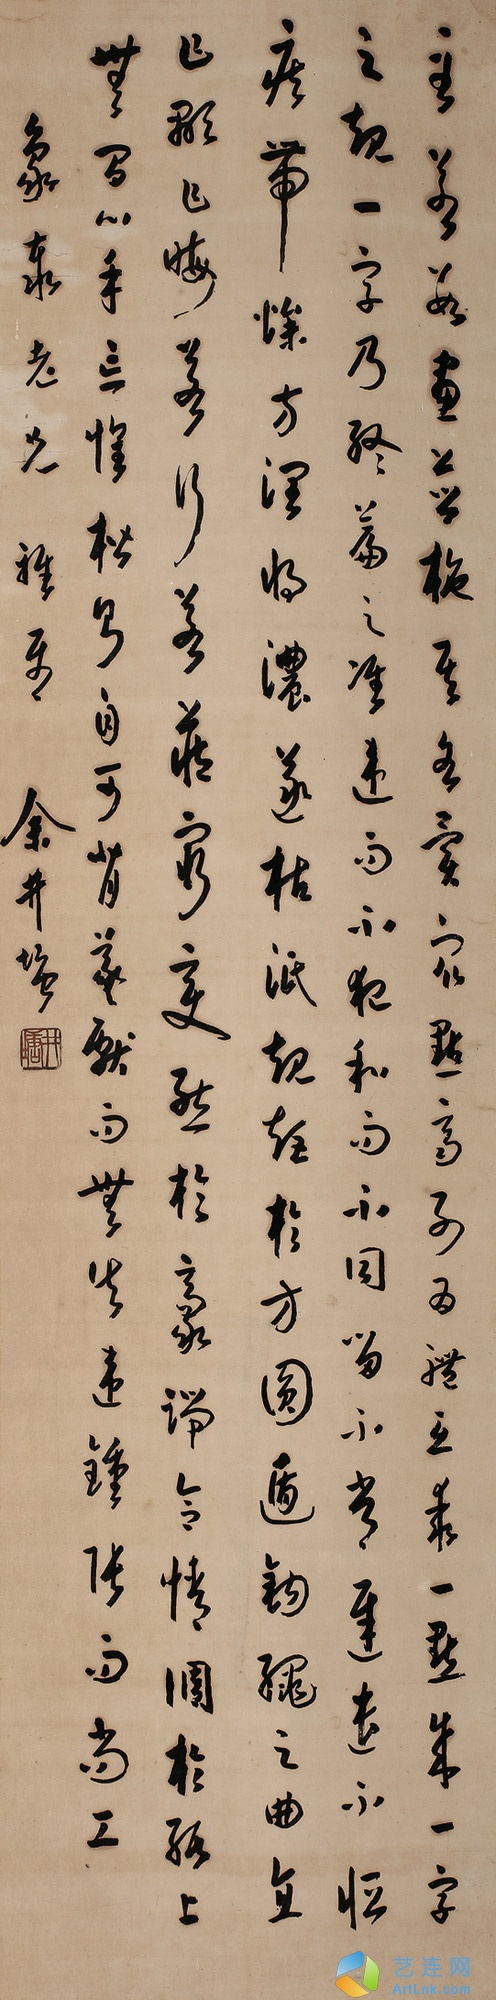 至若數畫並施其各異眾點齊列為體互乖一點成一字
之規一字乃終篇之准違而不犯和而不同留不常遲遣不恒
疾帶燥方潤將濃遂枯泯規矩於方圓遁鉤繩之曲直
乍顯乍晦若行若藏窮變態於豪端合情調於紙上
無間心手忘懷楷則自可背羲獻而無失違鍾張而尚工
象泰老兄 雅屬 余井塘
井塘
艺连网
ArtLnk.com